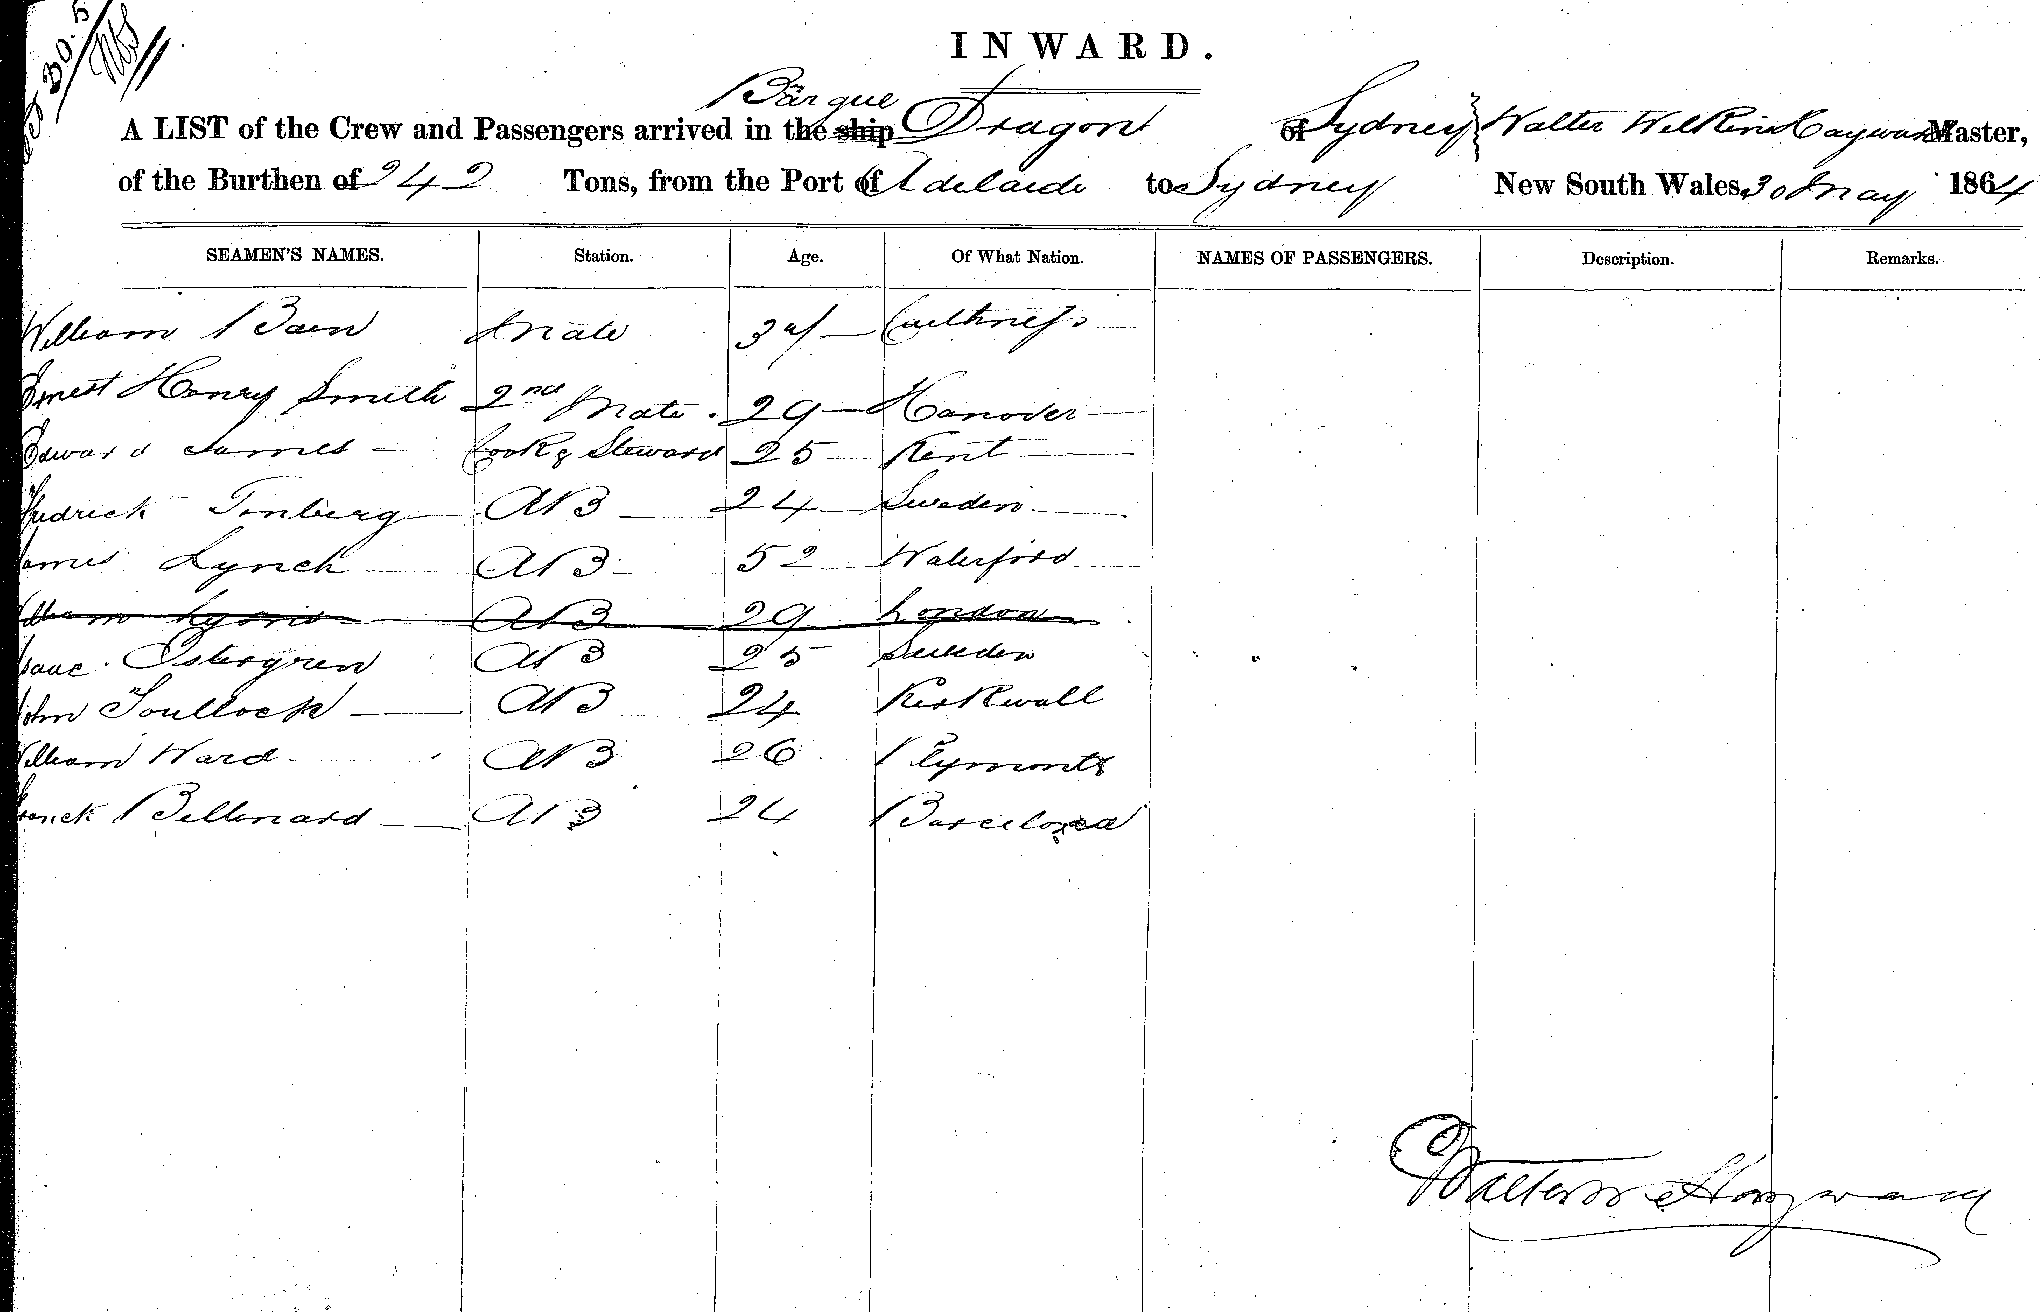 30.5
INWARD.
Barque
A LIST of the Crew and Passengers arrived in the ship Dragon of Sydney Walter Wilkins Hayward Master,
of the Burthen of 242 Tons, from the Port of Adelaide to Sydney New South Wales, 30 May 1864
SEAMEN'S NAMES. Station. Age. Of What Nation. NAMES OF PASSENGERS. Description. Remarks.
William Bain Mate Caithness
Ernest Henry Smith 2nd Mate. 29 Hanover
Edward James Cook & Steward 25 Kent
Fredrick Tonberg AB 24 Sweden
James Lynch AB 52 Waterford
William Lyons AB 29 London
Isaac Ostergren AB 25 Sweden
John Toullock AB 24 Kirkwall
William Ward AB 26 Plymouth
Franck Bellenard AB 24 Barcelona
Walter W Hayward